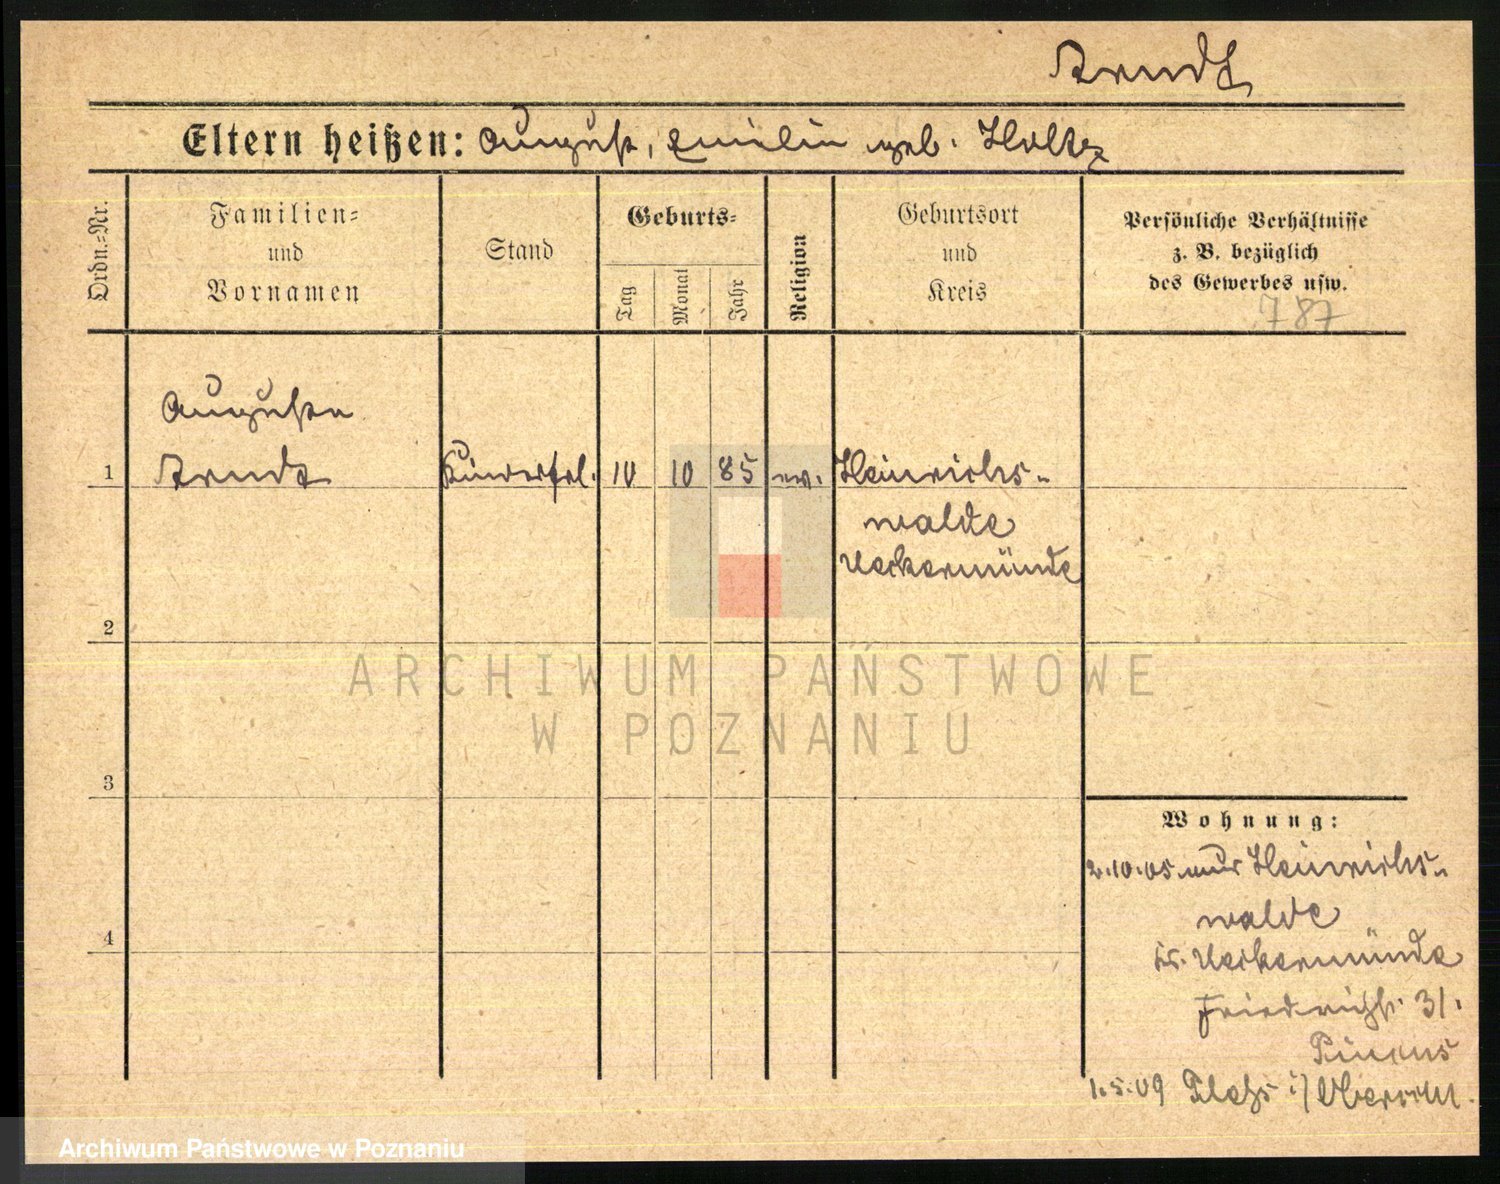 Arndt
Eltern heißen: August, Emilie geb. Holtz
Ordn.=Nr.
Familien=
und
Vornamen
Stand
Geburts=
Tag
Monat
Jahr
Religion
Geburtsort
und
Kreis
Persönliche Verhältnisse
z. B. bezüglich
des Gewerbes usw.
787
Auguste
1 Arndt Kinderfrl. 10 10 85 ev. Heinrichs-
walde
Ueckermünde
2
ARCHIWUM PAŃSTWOWE
W POZNANIU
3
Wohnung:
2.10.05 aus Heinrichs-
walde
Kr. Ueckermünde
4
Friedrichstr. 31.
Pincus
1.5.09
Archiwum Państwowe w Poznaniu